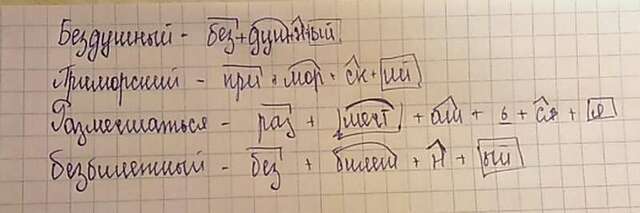 Бездушный - без+душ+н+ый
Приморский - при + мор + ск + ий
Размечтаться - раз + мечт + а + ть + ся + я
Безбилетный - без + билет + н + ый